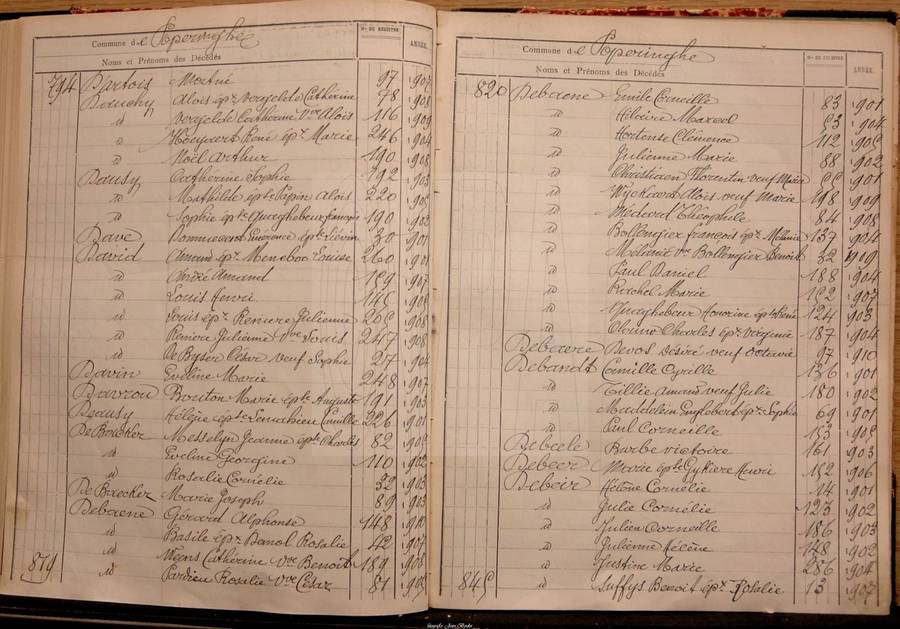 Commune de Poperinghe
Noms et Prénoms des Décédés
Nº DU REGISTRE
ANNÉE
794 Dartois Mortné 97 1907
Dauchy Alois épx Vergelde Catherine 78 1908
id Vergelde Catherine Vve Alois 116 1909
id Hoeyaert René épx Marie 246 1904
id Noël Arthur 190 1908
Dausy Catherine Sophie 192 1903
id Mathilde épse Papin Alois 220
id Sophie épse Quaghebeur François 190 1903
Dave Eméronce épse Liévin 30 1901
David Amand épx Meneboo Louise 260 1901
id André Amand 159 1907
id Louis Henri 145 1908
id Louis épx Remere Julienne 265 1908
id Julienne Vve Louis 247 1908
id De Byser César veuf Sophie 27 1904
Davin Eveline Marie 248 1907
Davrou Bouton Marie épse Auguste 191 1903
Deausy Hélgie épse Lemahieu Camille 226 1901
De Boecker Messelyn Jeanne épse Charles 82
id Eveline Georgine 110 1902
id Rosalie Cornélie 32 1903
De Baecker Marie Joseph 89 1903
Debaene Gérard Alphonse 148 1910
id Basile épx Benol Rosalie 42 1907
id Weens Catherine Vve Benoit 189 1908
819 id Pardieu Rosalie Vve César 81
Commune de Poperinghe
Noms et Prénoms des Décédés
Nº DU REGISTRE
ANNÉE
820 Debaene Emile Corneille 83 1901
id Hilaire Marcel 53 1904
id Hortense Clémence 112
id Julienne Marie 88 1902
id Christiaen Florentin veuf Marie 1901
id Wyckaert Alois veuf Marie 198 1909
id Médard Théophile 84 1908
id Bollengier François épx Mélanie 137 1904
id Mélanie Vve Bollengier Benoit 32 1909
id Paul Daniel 188 1904
id Rachel Marie 152 1907
id Quaghebeur Honorine épse René 124 1903
id Charles épx Virginie 187 1904
Debaere Devos Désiré veuf Octavie 97 1910
Debandt Camille Cyrille 136 1901
id Tillie Amand veuf Julie 180 1902
id Maddelein Englebert épx Sophie 69 1901
id Paul Corneille 153
Debeele Barbe Victoire 161 1903
Debeer Marie épse Gykiere Henri 152 1906
Debeir Hélène Cornélie 14 1901
id Julie Cornélie 123 1902
id Julien Corneille 186 1903
id Julienne Hélène 148 1902
id Justine Marie 286 1904
845 id Suffys Benoit épx Rosalie 13 1907